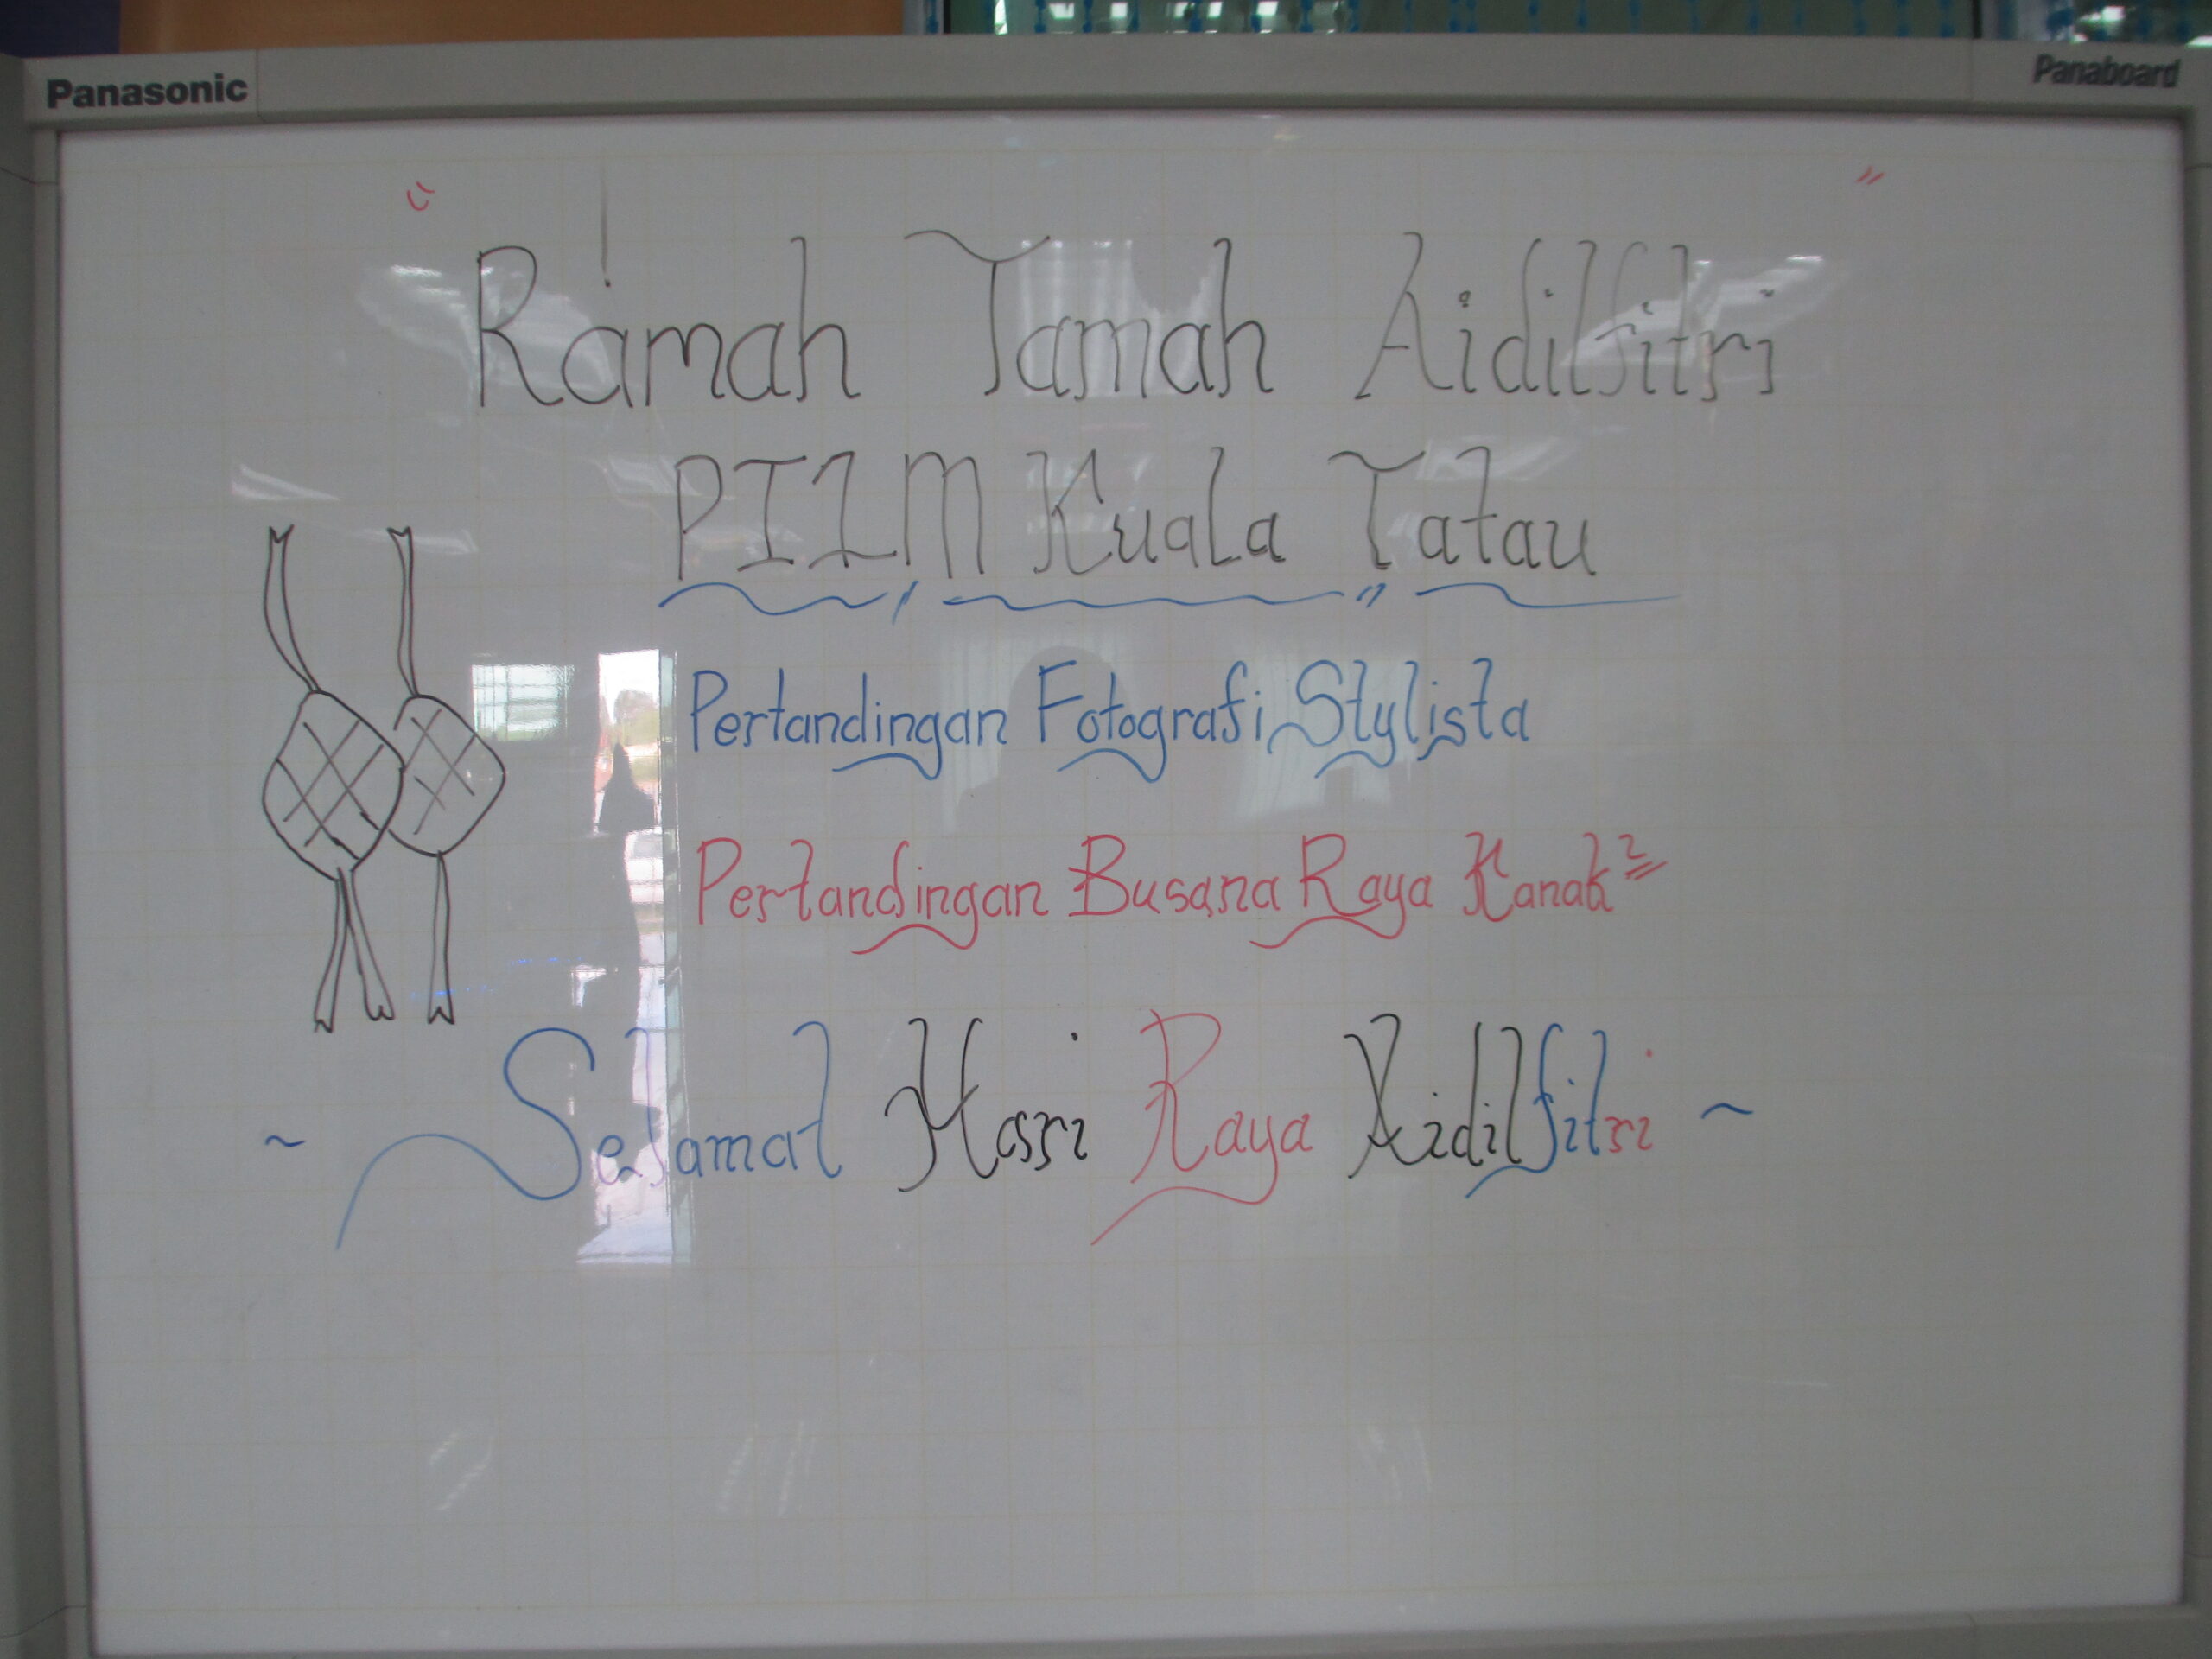 Panasonic
Panaboard
"Ramah Tamah Aidilfitri"
PI1M Kuala Tatau
Pertandingan Fotografi Stylista
Pertandingan Busana Raya Kanak²
~ Selamat Hari Raya Aidilfitri ~